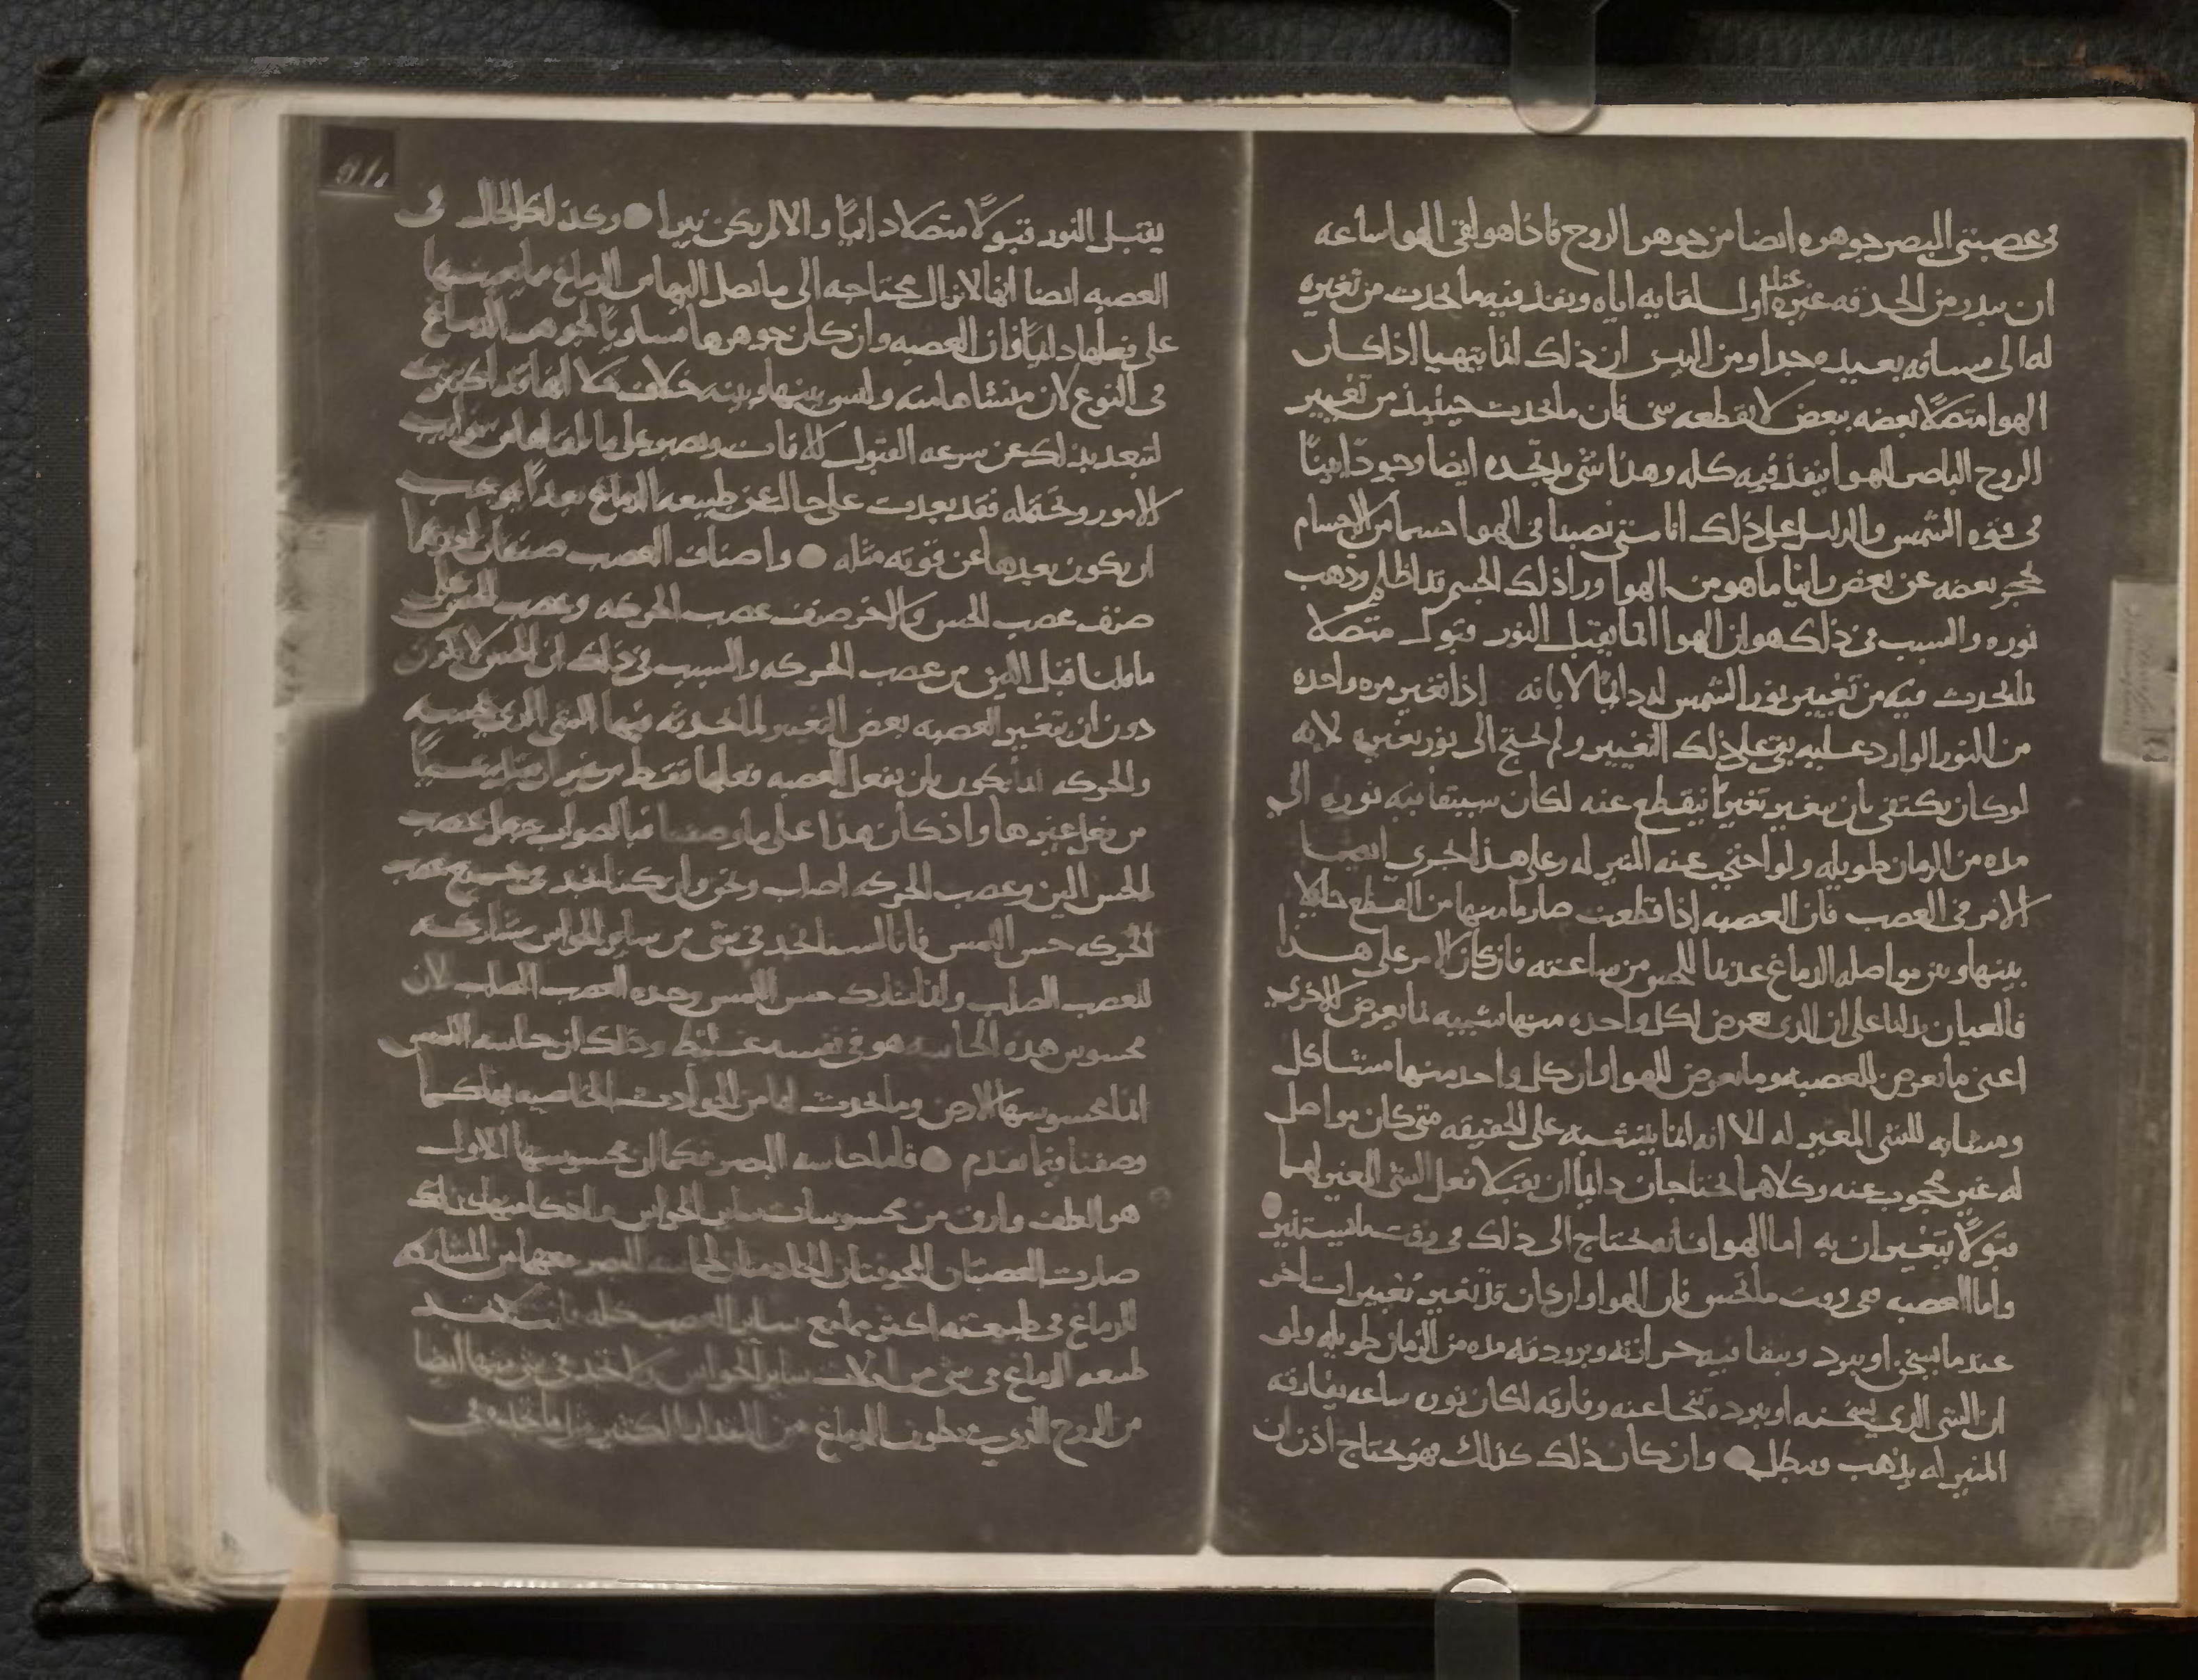 في عصبتي البصر جوهره ايضا من جوهر الروح فاذا هو لقي الهوا ساعه
ان يبدر من الحدقه غيره عند اول لقايه اياه ونفذ فيه ما يحدث من تغيره
له الى مسافه بعيده جدا ومن البين ان ذلك انما يتهيا اذا كان
الهوا متصلا بعضه ببعض لا يقطعه شي فان ما يحدث حينيذ من تغيير
الروح الباصر للهوا ينفذ فيه كله وهذا شي قد نجده ايضا وجودا بينا
في قوه الشمس والدليل على ذلك انا متى نصبنا في الهوا جسما من الاجسام
يحجز بعضه عن بعض راينا ما هو من الهوا ورا ذلك الجسم قد اظلم وذهب
نوره والسبب في ذلك هو ان الهوا انما يقبل النور قبولا متصلا
لما يحدث فيه من تغيير نور الشمس له دايما لا بانه اذا تغير مره واحده
من النور الوارد عليه بقي على ذلك التغيير ولم يحتج الى نور يغيره لانه
لو كان يكتفي بان يتغير تغيرا ينقطع عنه لكان سيبقا فيه نوره الى
مده من الزمان طويله ولو احتجب عنه المنير له وعلى هذا يجري ايضا
الامر في العصب فان العصبه اذا قطعت صار ما منها من القطع حايلا
بينها وبين مواصله الدماغ عديما للحس من ساعته فان كان الامر على هذا
فالعيان يدلنا على ان الذي يعرض لكل واحده منها شبيه لما يعرض للاخرى
اعني ما يعرض للعصبه وما يعرض للهوا وان كل واحد منها مشاكل
ومشابه للشي المغير له الا انه انما يتشبه على الحقيقه متى كان مواصل
له غير محجوب عنه وكلاهما يحتاجان دايما ان يقبلا فعل الشي المغير لهما
قبولا يتغيران به اما الهوا فانه يحتاج الى ذلك في وقت ما يستنير
واما العصبه ففي وقت ما تحس فان الهوا وان كان قد تغير تغييرات اخر
عندما يسخن او يبرد ويبقا فيه حرارته وبرودته مده من الزمان طويله ولو
ان الشي الذي يسخنه او يبرده تنحا عنه وفارقه لكان نوره ساعه يفارقه
المنير له يذهب ويبطل وان كان ذلك كذلك فهو يحتاج اذن ان
يقبل النور قبولا متصلا دايما والا لم يكن نيرا وكذلك الحال في
العصبه ايضا انها لا تزال محتاجه الى ما يصل اليها من الدماغ ما يعينها
على فعلها دايما فان العصبه وان كان جوهرها مساويا لجوهر الدماغ
في النوع لان منشاها منه وليس بينها وبينه خلاف خلا انها قد اكتنزت
لتبعد بذلك عن سرعه القبول للافات وتصبر على ما يلقاها من نوايب
الامور وتحتمله فقد بعدت على حال عن طبيعه الدماغ بعدا يوجب
ان يكون بعدها عن قوته مثله واصناف العصب صنفان احدهما
صنف عصب الحس والاخر صنف عصب الحركه وعصب الحس على
ما قلنا قبل الين من عصب الحركه والسبب في ذلك ان الحس لا يكون
دون ان تتغير العصبه بعض التغيير لما يحدثه فيها الشي الذي تحسه
والحركه انما تكون بان تفعل العصبه فعلها فقط من غير ان تقبل شيا
من فعل غيرها واذ كان هذا على ما وصفنا فبالصواب جعل عصب
الحس الين وعصب الحركه اصلب ونحن وان كنا نجد في جميع عصب
الحركه حس اللمس فانا لسنا نجد في شي من ساير الحواس مشاركه
للعصب الصلب وانما شارك حس اللمس وحده العصب الصلب لان
محسوس هذه الحاسه هو في نفسه غليظ وذلك ان حاسه اللمس
انما محسوسها الارض وما يحدث لها من الحوادث الخاصيه بها كما
وصفنا فيما تقدم فاما حاسه البصر فكما ان محسوسها الاول
هو الطف وارق من محسوسات ساير الحواس كذلك
صارت العصبتان المجوفتان الخادمتان لحاسه البصر معهما من المشاركه
للدماغ في طبيعته اكثر مما مع ساير العصب كله فانك تجد
طبيعه الدماغ في شي من الات ساير الحواس ولا تجد في شي منها ايضا
من الروح الذي في بطون الدماغ من المقدار الكثير مثل ما تجده في